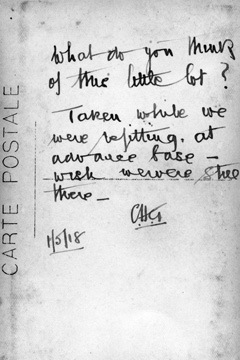 What do you think
of this little lot?
Taken while we
were refitting. at
advance base –
wish we were still
there –
1/5/18
CARTE POSTALE